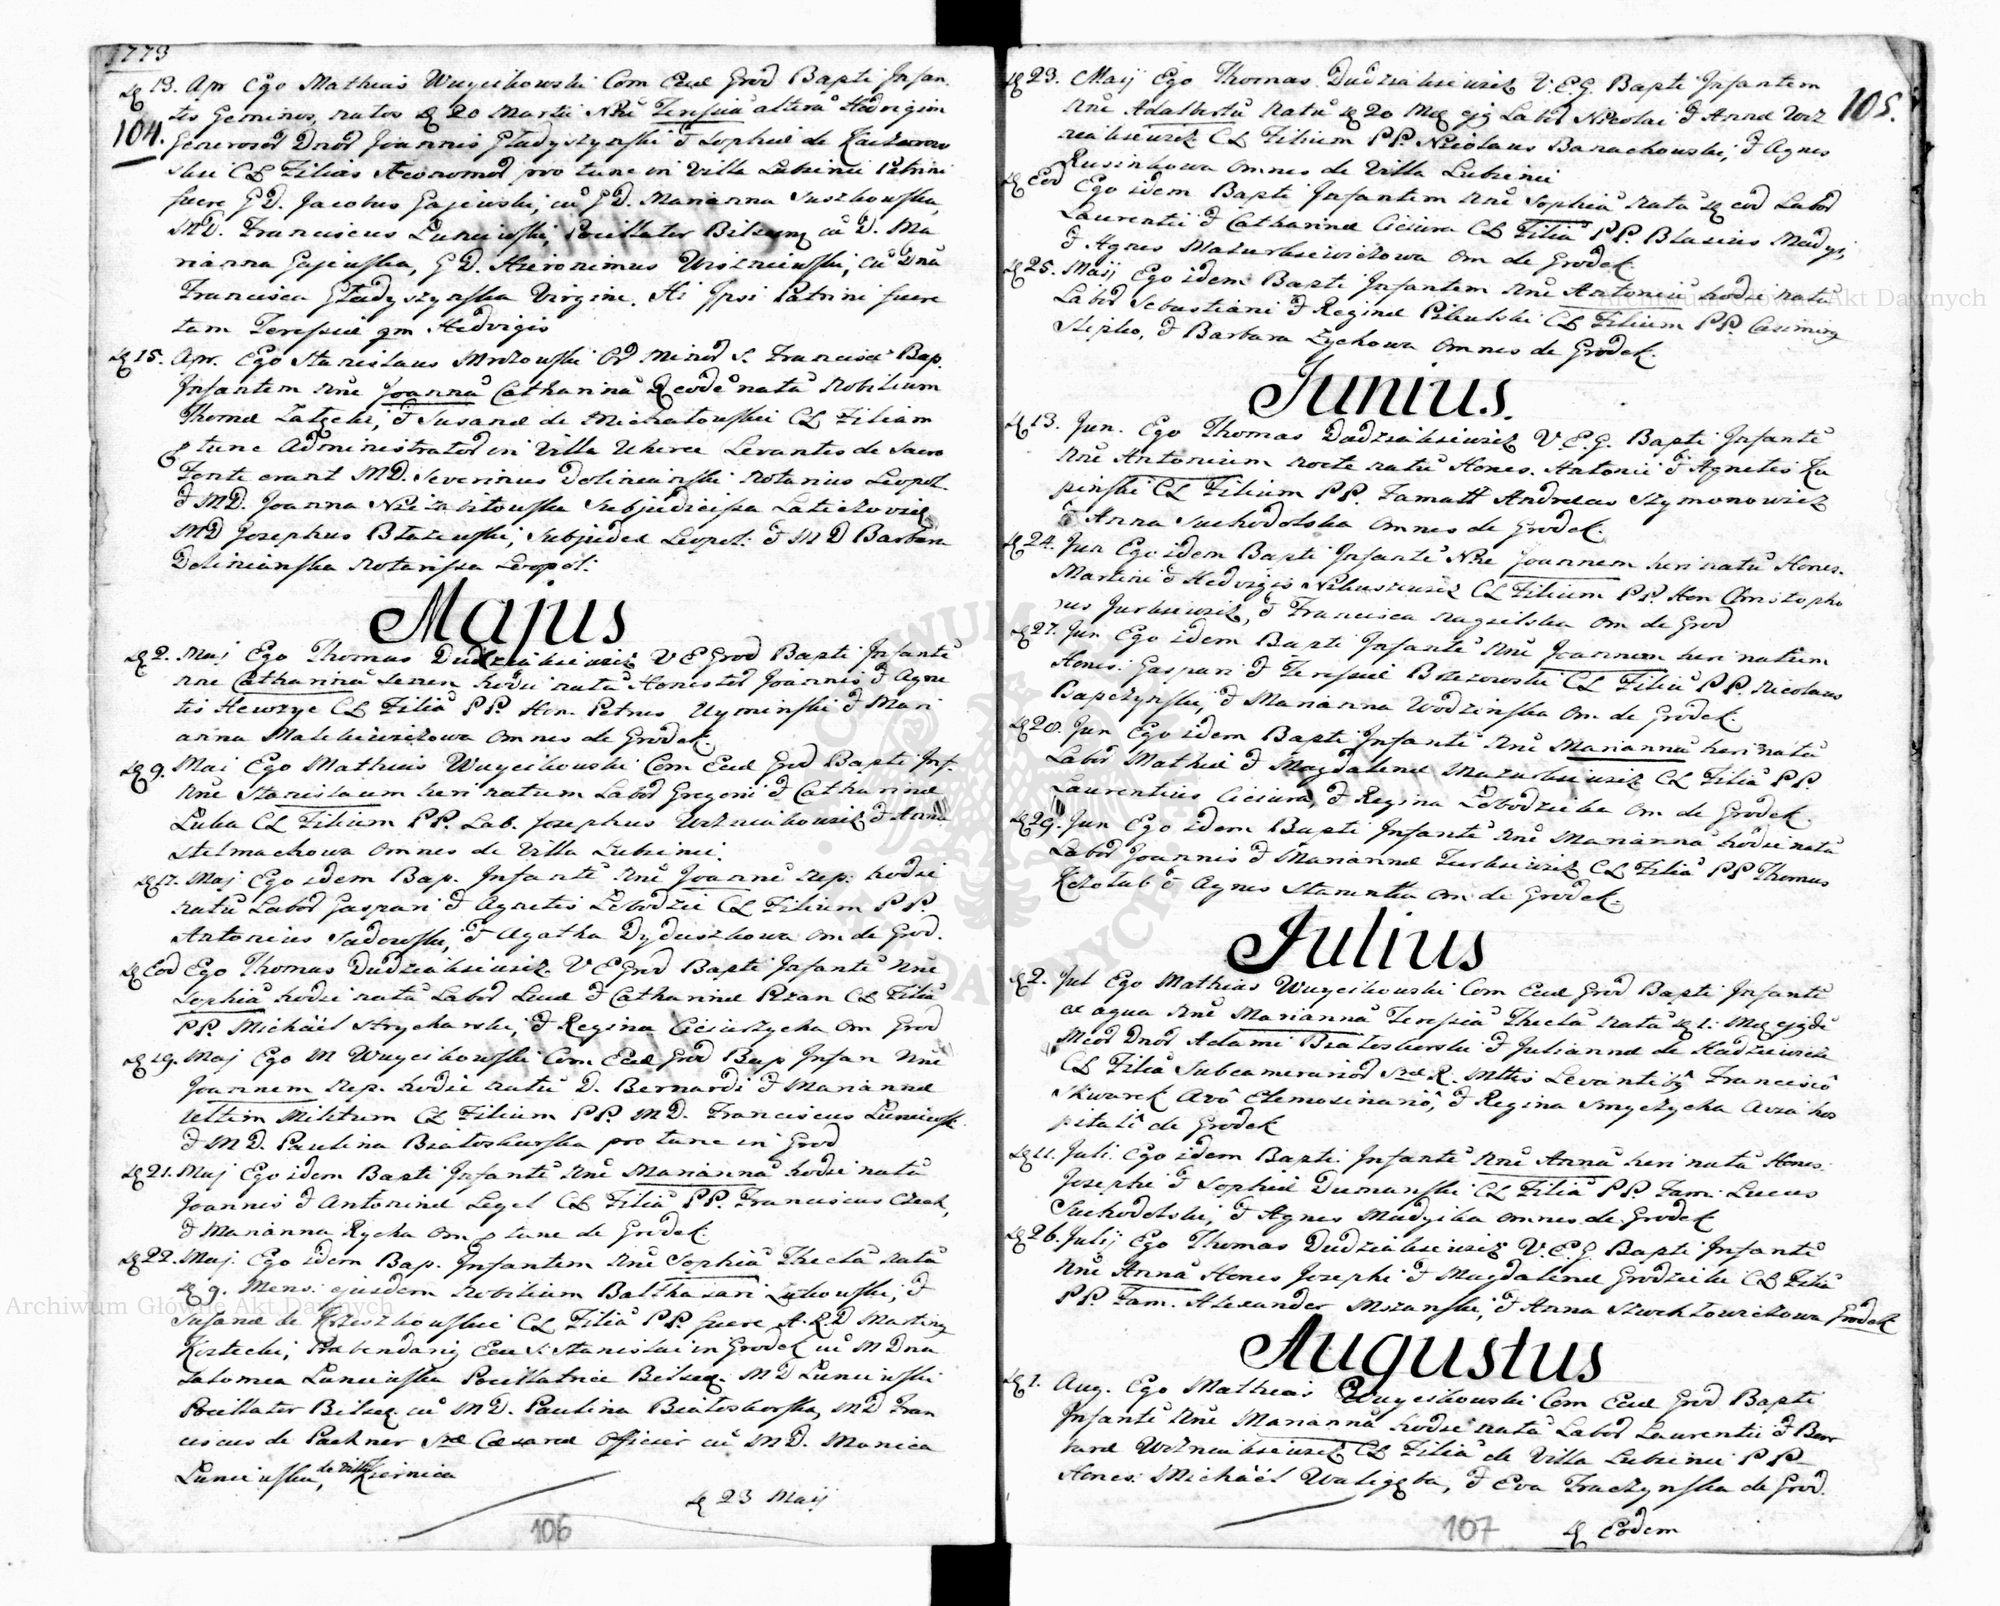 1773
D 13. Apr Ego Mathias Wuycikowski Com Eccl Grod Bapti Infan
tes Geminos, natos D 20 Martii Nne Teressiã alterã Hedvigim
104. Generosor Dnor Joannis Gładyszynski & Sophiæ de Kaczanow
skie CL Filias Æconomor pro tunc in Villa Lubinii Patrini
fuere G D. Jacobus Gajewski, cũ G D. Marianna Suszkowska,
MD. Franciscus Luniewski, Pocillator Bilscens cũ D. Ma
rianna Gajewska, G D. Hieronimus Wiszniewski, cũ Dnã
Francisca Gładyszynska Virgine. Hi Ipsi Patrini fuere
tam Teressiæ qm Hedvigis
D 15. Apr. Ego Stanislaus Mrozowski Or Minor S. Francisci Bap.
Infantem nne Joannã Catharinã D eode natã Nobilium
Thomæ Zaleski, & Susanæ de Michałowskie CL Filiam
p tunc Administrator in Villa Uherce Levantes de Sacro
Fonte erant MD. Severinus Dolinianski Notarius Leopol.
& MD. Joanna Niezabitowska Subjudicissa Laticzovien
MD Josephus Błazewski, Subjudex Leopol: & M D Barbara
Dolinianska Notarissa Leopol:
Majus
D 2. Maj Ego Thomas Dudziakiewicz V E Grod Bapti Infantẽ
nne Catharinã Seren hodie natã Honestor Joannis & Agne
tis Hewryc CL Filiã PP. Hon. Petrus Uyminski & Mari
anna Malikiewiczowa Omnes de Grodek.
D 9. Maj Ego Mathias Wuycikowski Com Eccl Grod Bapti Inf.
Nne Stanislaum heri natum Labor Gregorii & Catharinæ
Luba CL Filium PP. Lab. Josephus Wozniakowicz & Anna
Stelmachowa Omnes de Villa Lubinii.
D 17. Maj Ego idem Bap. Infantẽ Nne Joannẽ Nep: hodie
natũ Labor Gaspari & Agnetis Łebodzii CL Filium PP.
Antonius Sadowski, & Agatha Dyduszkowa om de Grod.
D Eod Ego Thomas Dudziakiewicz V E Grod Bapti Infantẽ Nne
Sophiã hodie natã Labor Lucæ & Catharinæ Pizan CL Filiã
PP. Michaël Strycharski, & Regina Ciciurzycka Om Grod
D 19. Maj Ego M Wuycikowski Com Eccl Grod Bap Infan Nne
Joannem Nep. hodie natũ D. Bernardi & Mariannæ
Ultim Militum CL Filium PP. MD. Franciscus Luniewsk
& MD. Paulina Białoskurska pro tunc in Grod
D 21. Maj Ego idem Bapti Infantẽ Nne Mariannã hodie natã
Joannis & Antoninæ Legel CL Filiã PP. Franciscus Czech,
& Marianna Rycka om p tunc de Grodek.
D 22. Maj. Ego idem Bap. Infantem Nne Sophiã Theclã natã
D 9. Mens: ejusdem Nobilium Balthasari Lukowski, &
Susanæ de Krzeszkowskie CL Filiã PP. fuere A.R.D Martins
Koztecki, Præbendarius Eccl S. Stanislai in Grodek cũ M Dna
Salomea Luniewska Pocillatrice Bilscen. MD Luniewski
Pocillator Bilscen cũ MD. Paulina Białoskorska, MD Fran
ciscus de Pachner Sae Cæsareæ Officier cũ MD. Monica
Luniewska, de Villa Kiernica
D 23 Maij
106
D 23. Maij Ego Thomas Dudziakiewicz V.E.G. Bapti Infantem
Nne Adalbertũ natũ D 20 Mens ejs Labor Nicolai & Annæ Woz 105.
niakiewicz CL Filium PP. Nicolaus Barachowski, & Agnes
Rusinkowa Omnes de Villa Lubinii
D Eod Ego idem Bapti Infantem Nne Sophiã natã D eod Labor
Laurentii & Catharinæ Ciciura CL Filiã PP. Blasius Madys,
& Agnes Mazurkiewiczowa Om de Grodek.
D 25. Maij Ego idem Bapti Infantem Nne Antoniũ hodie natũ
Labor Sebastiani & Reginæ Pikulski CL Filium PP. Casimirs
Stipko, & Barbara Zychowa Omnes de Grodek.
Junius.
D 13. Jun. Ego Thomas Dudziakiewicz V.E.G. Bapti Infantẽ
Nne Antonium nocte natũ Hones. Antonii & Agnetis Ka
pinski CL Filium PP. Famatt Andreas Szymonowicz
& Anna Suchodolska Omnes de Grodek.
D 24. Jun Ego idem Bapti Infantẽ Nne Joannem heri natũ Hones.
Martini & Hedvigis Nikuszewicz CL Filium PP. Hon Christopho
rus Jurkiewicz, & Francisca Nagzelska Om de Grod
D 27. Jun Ego idem Bapti Infantẽ Nne Joannem heri natum
Hones. Gaspari & Teressiæ Brzezowski CL Filiũ PP. Nicolaus
Bapczynski, & Marianna Wodzinska Om. de Grodek.
D 28. Jun Ego idem Bapti Infantẽ Nne Mariannã heri natã
Labor Mathiæ & Magdalenæ Mazurkiewicz CL Filiã PP.
Laurentius Ciciura, & Regina Łebodzicka Om de Grodek.
D 29. Jun Ego idem Bapti Infantẽ Nne Mariannã hodie natã
Labor Joannis & Mariannæ Turkiewicz CL Filiã PP Thomas
Kozołub & Agnes Stamntka om de Grodek.
Julius
D 2. Jul Ego Mathias Wuycikowski Com Eccl Grod Bapti Infantẽ
ex aqua Nne Mariannã Teressiã Theclã natã D 1: Mens ejsde
Mcor Dnor Adami Białoskorski & Juliannæ de Hadziewicze
CL Filiã Subcamerarior Sae R. Mttis Levantibs Francisco
Skwarek Avo Elemosinario, & Regina Smyczycka Avia hos
pitali de Grodek
D 11. Juli. Ego idem Bapti Infantẽ Nne Annã heri natã Hones.
Josephi & Sophiæ Dumanski CL Filiã PP. Fam: Lucas
Suchodolski, & Agnes Madyika omnes de Grodek
D 26. Julij Ego Thomas Dudziakiewicz V.E.G. Bapti Infantẽ
Nne Annã Hones Josephi & Magdalenæ Grodzicki CL Filiã
PP. Fam. Alexander Mszanski, & Anna Szwechłowickowa Grodek
Augustus
D 1. Aug. Ego Mathias Wuycikowski Com Eccl Grod Bapti
Infantẽ Nne Mariannã hodie natã Labor Laurentii & Bar
baræ Wozniakiewicz CL Filiã de Villa Lubinii PP.
Hones: Michaël Waligęba, & Eva Traczynska de Grod.
D Eodem
107
Archiwum Główne Akt Dawnych
Archiwum Główne Akt Dawnych